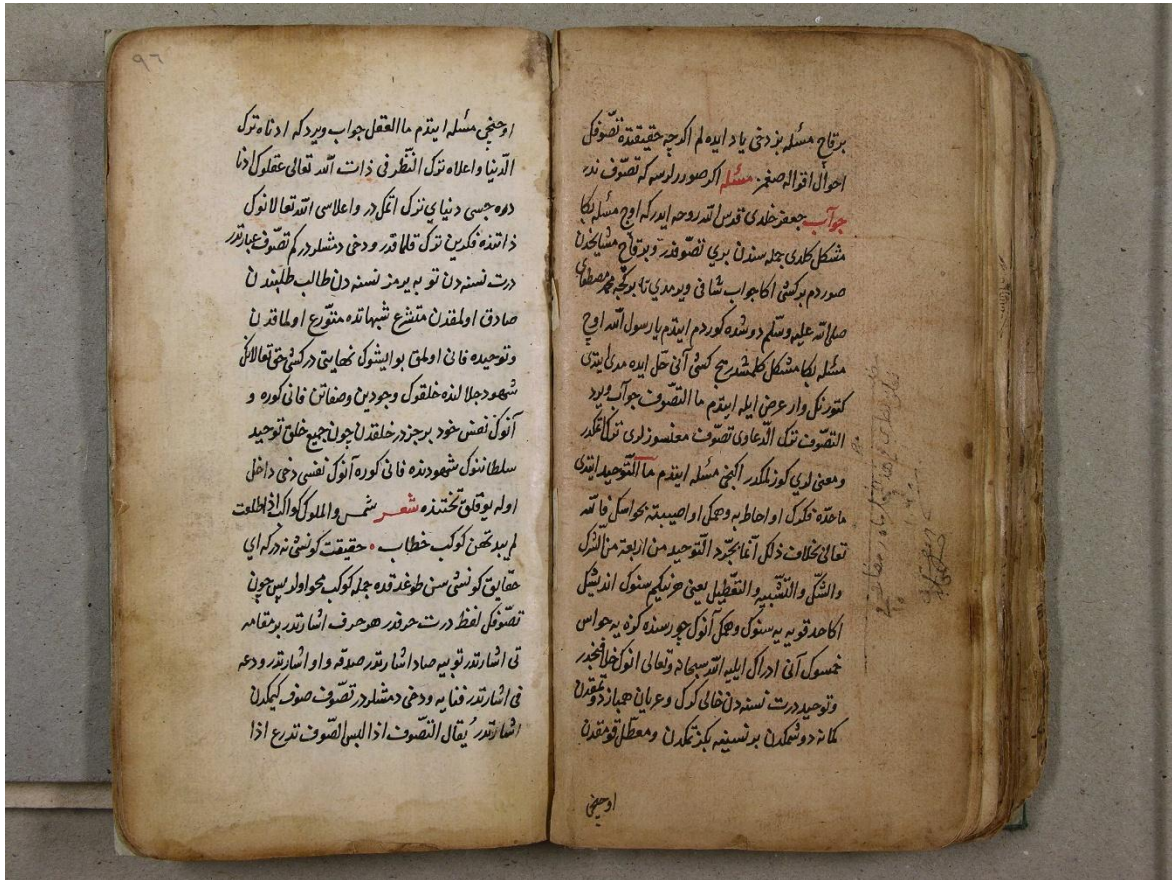 برقاچ مسٔله بز دخی یاد ایده لم اکرچه حقیقتده تصوّفك
احوال اقواله صغمز مسٔله اکر صوررلرسه که تصوّف ندر
جواب جعفر خلدی قدس الله روحه ایدر که اوچ مسٔله بکا
مشکل کلدی جمله سندن بری تصوّفدر و برقاچ مشایخدن
صوردم بر کشی اکا جواب شافی ویرمدی تا بر کیجه محمد مصطفای
صلی الله علیه وسلّم دوشده کوردم ایتدم یا رسول الله اوچ
مسٔله بکا مشکل کلمشدر هیچ کشی آنی حل ایده مدی ایتدی
کتورنکل وار عرض ایله ایتدم ما التصوّف جواب ویردی
التصوّف ترك الدعاوی تصوّف معنسوز لری ترك اتمکدر
و معنی لری کوزلمکدر اکنجی مسٔله ایتدم ما التّوحید ایتدی
ماحدّه فکرك او احاط به وهمك او اصیبته بحواسك فالله
تعالی بخلاف ذلك آنما تجرّد التّوحید من اربعة من الشرك
والشّك والتّشبیه والتّعطیل یعنی هر نیکم سنوك اندیشك
اکا حد قویه یه سنوك وهمك آنوك چورسنده کزه یه حواس
خمسوك آنی ادراك ایلیه الله سبحانه وتعالی انوك خلافنجدر
وتوحید درت نسنه دن خالی کرك و عریان همباز دوتمقدن
کمانه دوشمکدن بر نسنیه بکزتمکدن و معطّل قومقدن
اوچنجی
٩٦
اوچنجی مسٔله ایتدم ما العقل جواب ویردی که ادناه ترك
الدّنیا و اعلاه ترك التّفکر فی ذات الله تعالی عقلوك ادنا
دوه جسی دنیای ترك اتمکدر و اعلاسی الله تعالانوك
ذاتنده فکرین ترك قلماقدر و دخی دمشلردر کم تصوّف عبارتدر
درت نسنه دن توبه یرمز نسنه دن طالب طلبندن
صادق اولمقدن متشرع شبهاتده متورّع اولماقدن
و توحیده فانی اولمق بو ایشوك نهایتی درکشی حق تعالانك
شهود جلالنده خلقوك وجودین و صفاتن فانی کوره و
آنوك نفس خود بر جزدر خلقدن چون جمیع خلق توحید
سلطاننوك شهودنده فانی کوره آنوك نفسی دخی داخل
اوله یوقلق تختنده شعر شمس والملوك کواکب اذا طلعت
لم یبد منهن کوکب خطاب • حقیقت کونشی نه درکه ای
حقایق کونشی سن طوغدقده جمله کوکب محو اولور پس چون
تصوّفك لفظ درت حرفدر هر حرف اشارتدر بر مقامه
تی اشارتدر توبیه صاد اشارتدر صدقه واو اشارتدر ودعه
فی اشارتدر فنایه و دخی دمشلردر تصوّف صوف کیمکدن
اشارتدر یقال التصوّف اذا لبس الصّوف تدرع اذا